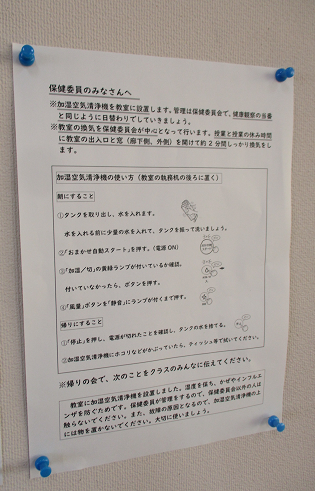 保健委員のみなさんへ
※加湿空気清浄機を教室に設置します。管理は保健委員会で、健康観察の当番
と同じように日替わりでしていきましょう。
※教室の換気を保健委員会が中心となって行います。授業と授業の休み時間
に教室の出入口と窓（廊下側、外側）を開けて約2分間しっかり換気をしま
す。
加湿空気清浄機の使い方（教室の執務机の後ろに置く）
朝にすること
①タンクを取り出し、水を入れます。
水を入れる前に少量の水を入れて、タンクを振って洗いましょう。
②「おまかせ自動スタート」を押す。（電源ON）
③「加湿／切」の黄緑ランプが付いているか確認。
付いていなかったら、ボタンを押す。
④「風量」ボタンを「静音」にランプが付くまで押す。
帰りにすること
①「停止」を押し、電源が切れたことを確認し、タンクの水を捨てる。
②加湿空気清浄機にホコリなどがかぶっていたら、ティッシュ等で拭いてください。
※帰りの会で、次のことをクラスのみんなに伝えてください。
教室に加湿空気清浄機を設置しました。湿度を保ち、かぜやインフルエ
ンザを防ぐためです。保健委員が管理をするので、保健委員会以外の人は
触らないでください。また、故障の原因となるので、加湿空気清浄機の上
には物を置かないでください。大切に使いましょう。